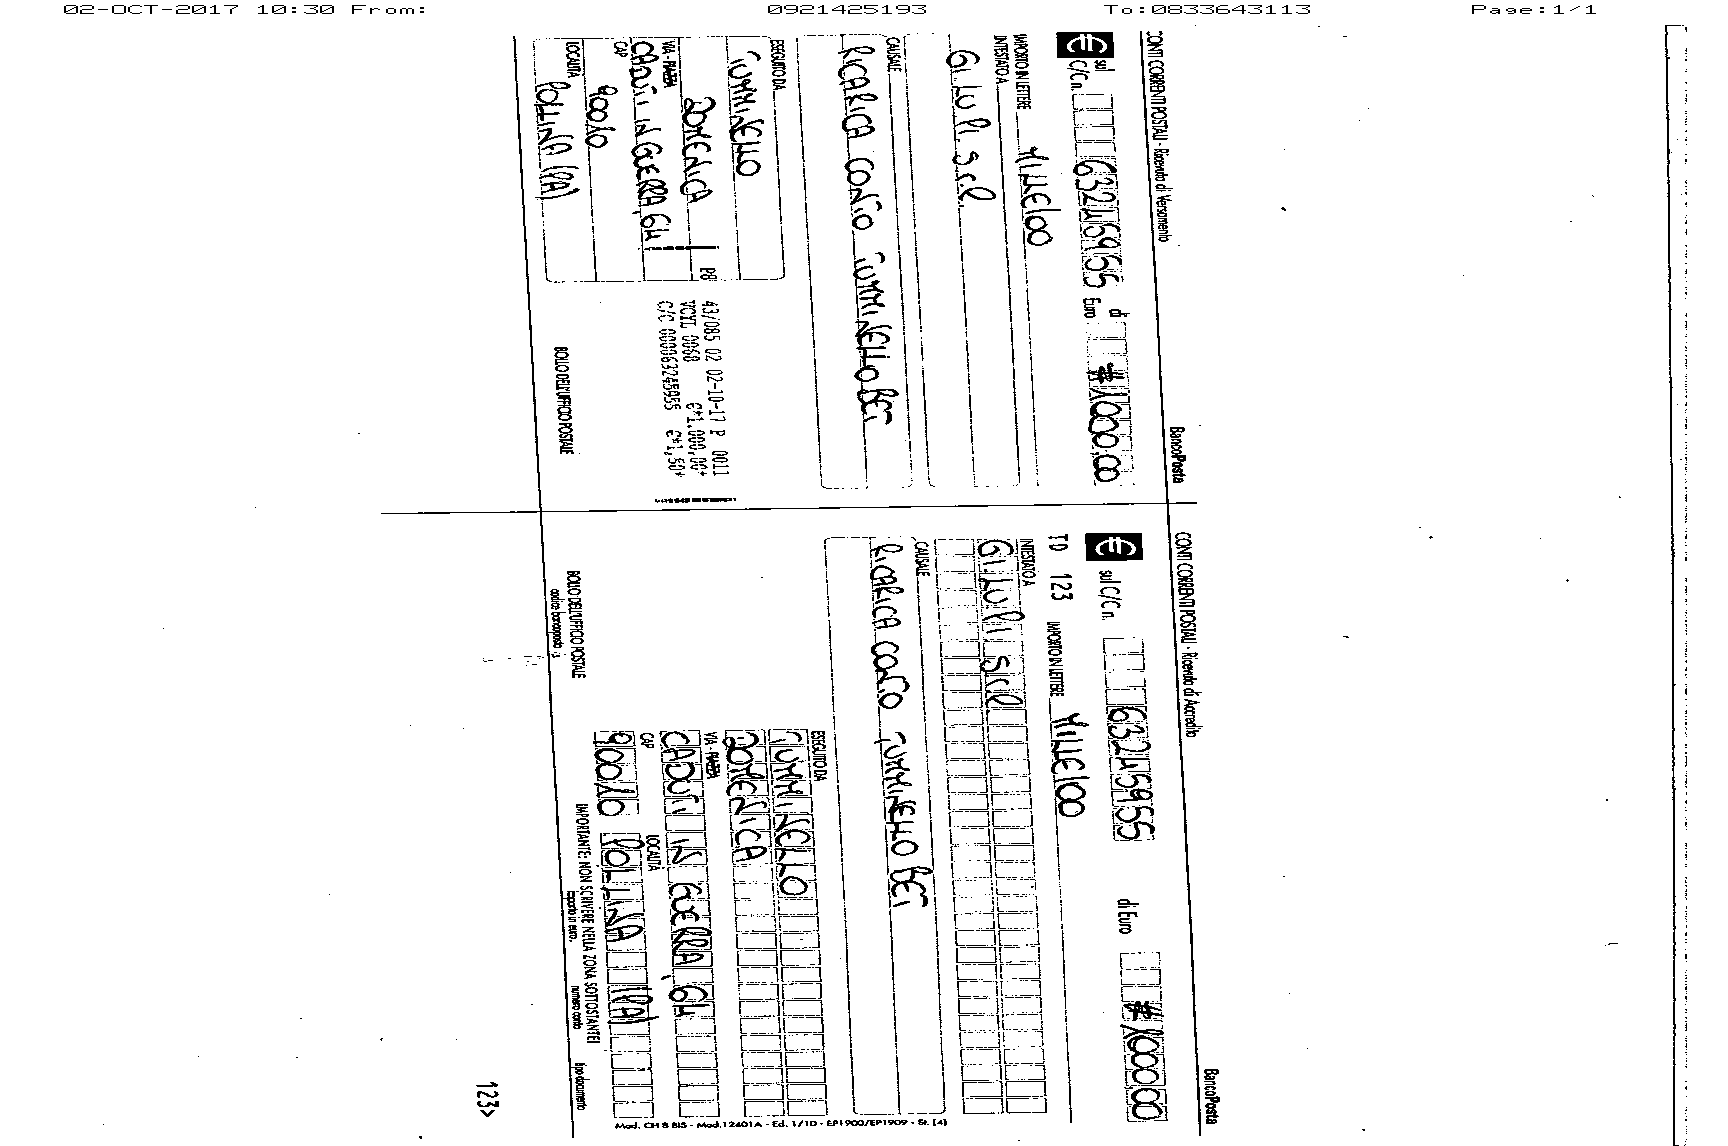 02-OCT-2017 10:30 From: 0921425193 To:0833643113 Page:1/1
CONTI CORRENTI POSTALI - Ricevuta di Versamento BancoPosta
€ sul C/C n. 63245955 di Euro #1000,00
IMPORTO IN LETTERE MILLE/00
INTESTATO A
GI.LU.PI. S.r.l.
CAUSALE
RICARICA CONTO TUMMINELLO BET
ESEGUITO DA
TUMMINELLO
DOMENICA
VIA - PIAZZA
CADUTI IN GUERRA, 64
CAP
90010
LOCALITÀ
POLLINA (PA)
PB
43/085 02 02-10-17 P 0011
VCYL 0068 €*1.000,00*
C/C 000063245955 €*1,50*
BOLLO DELL'UFFICIO POSTALE
CONTI CORRENTI POSTALI - Ricevuta di Accredito BancoPosta
€ sul C/C n. 63245955 di Euro #1000,00
TD 123 IMPORTO IN LETTERE MILLE/00
INTESTATO A
GI.LU.PI. S.r.l.
CAUSALE
RICARICA CONTO TUMMINELLO BET
ESEGUITO DA
TUMMINELLO
DOMENICA
VIA - PIAZZA
CADUTI IN GUERRA, 64
CAP LOCALITÀ
90010 POLLINA (PA)
BOLLO DELL'UFFICIO POSTALE
codice bancoposta
IMPORTANTE: NON SCRIVERE NELLA ZONA SOTTOSTANTE!
importo in euro. numero conto tipo documento
123>
Mod. CH 8 BIS - Mod.12401A - Ed. 1/1D - EP1900/EP1909 - St. [4]